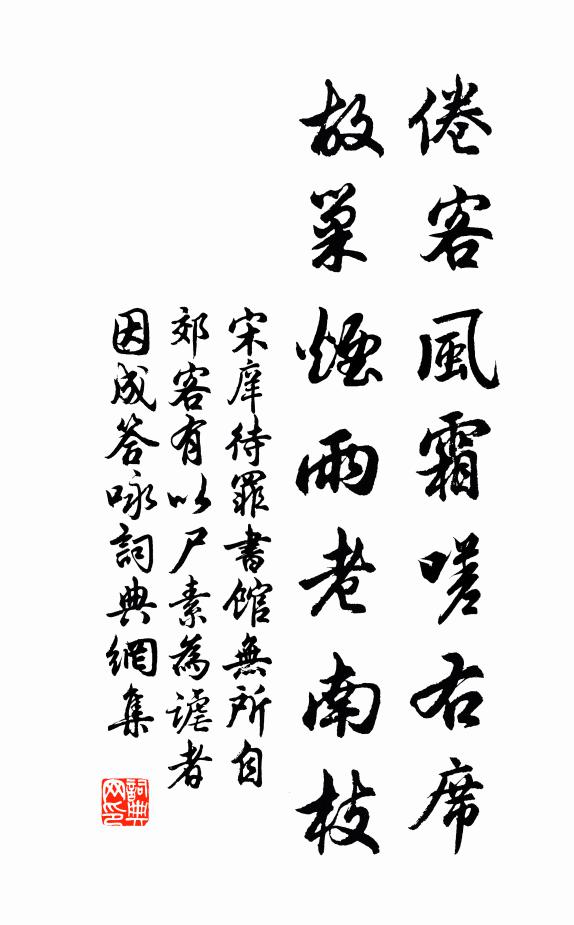 倦客風霜嗟右席
故巢煙雨老南枝
宋庠待罪書館無所自
郊客有以尸素為謔者
因成答咏詞典網集
詞典網印